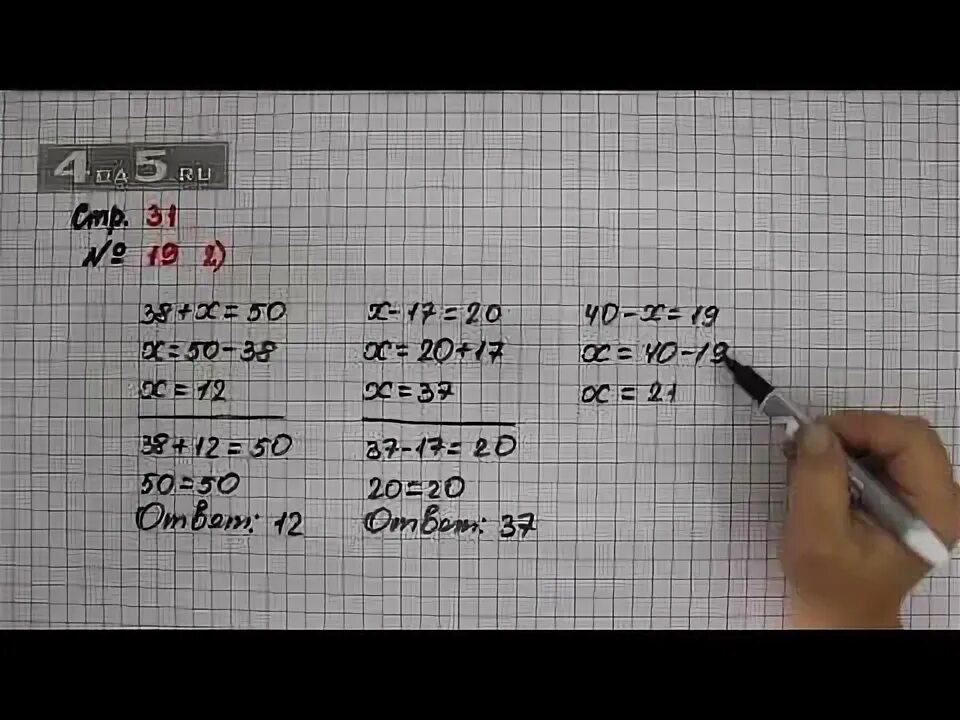 4 на 5.RU
Стр. 31
№ 19 2)
38+x=50
x=50-38
x=12
38+12=50
50=50
Ответ: 12
x-17=20
x=20+17
x=37
37-17=20
20=20
Ответ: 37
40-x=19
x=40-19
x=21